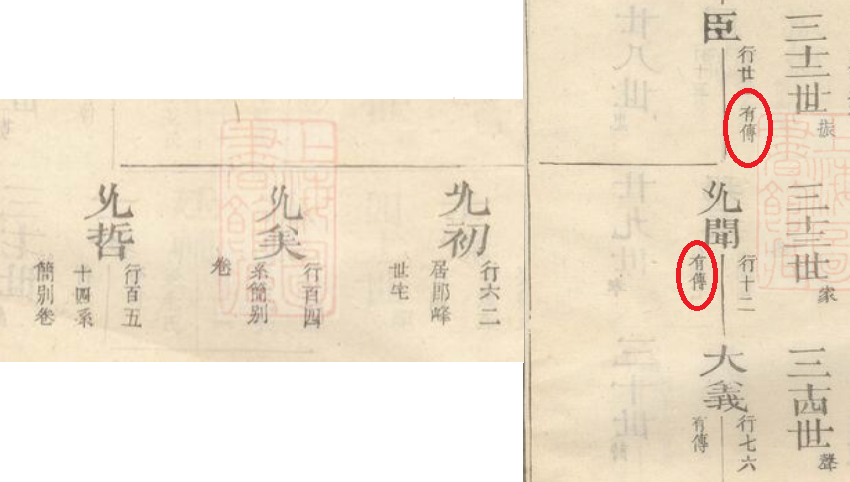 三十二世 振
臣
行廿
有傳
三十三世 家
允聞
行十二
有傳
三十四世 聲
大義
行七六
有傳
廿八世
廿九世
三十世
允初
行六二
居郎峰
世宅
允矣
行百四
系簡別
卷
允哲
行百五
十四系
簡別卷